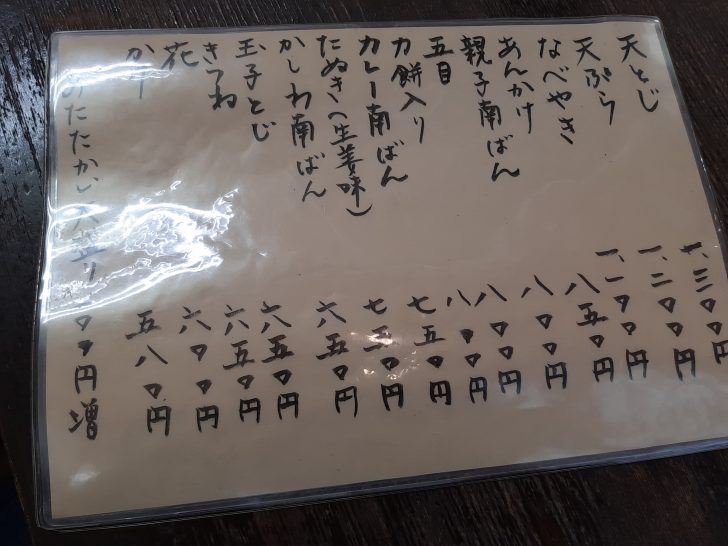 天とじ 一、三〇〇円
天ぷら 一、二〇〇円
なべやき 一、一〇〇円
あんかけ 八五〇円
親子南ばん 八〇〇円
五目 八〇〇円
力餅入り 八〇〇円
カレー南ばん 七五〇円
たぬき(生姜味) 七五〇円
かしわ南ばん 六五〇円
玉子とじ 六五〇円
きつね 六五〇円
花 六〇〇円
五八〇円
あたたかい大盛り一〇〇円増